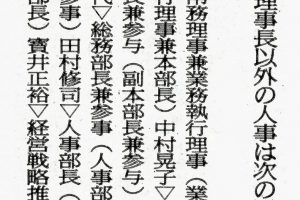 理事長以外の人事は次の
常務理事兼業務執行理事（業
行理事兼本部長）中村晃子▽
長兼参与（副本部長兼参与）
代▽総務部長兼参事（人事部
参事）田村修司▽人事部長（
部長）寳井正裕▽経営戦略推